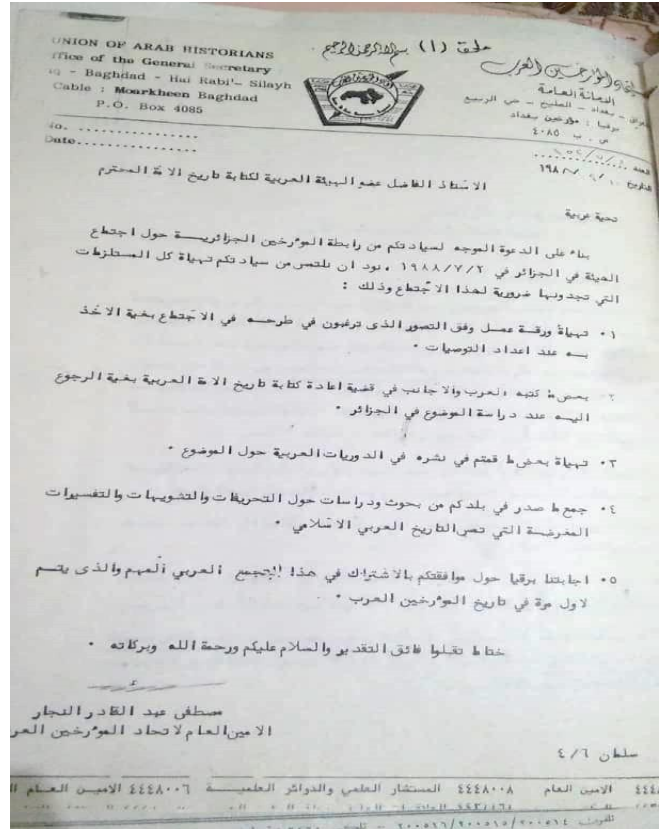 ملحق (١) بسم الله الرحمن الرحيم
UNION OF ARAB HISTORIANS
ffice of the General Secretary
q - Baghdad - Hai Rabi'- Silayh
Cable : Moarkheen Baghdad
P.O. Box 4085
No. ...............
Date...............
اتحاد المؤرخين العرب
الامانة العامة
بغداد - الصليخ - حي الربيع
برقيا : مؤرخين بغداد
ص . ب ٤٠٨٥
العدد
التاريخ
الاستاذ الفاضل عضو الهيئة العربية لكتابة تاريخ الامة المحترم
تحية عربية
بناء على الدعوة الموجه لسيادتكم من رابطة المؤرخين الجزائريــة حول اجتماع
الهيئة في الجزائر في ١٩٨٨/٧/٢ ، نود ان نلتمس من سيادتكم تهيأة كل المستلزمات
التي تجدونها ضرورية لهذا الاجتماع وذلك :
١٠ تهيأة ورقــة عمــل وفق التصور الذى ترغبون في طرحــه في الاجتماع بغية الاخذ
بــه عند اعداد التوصيات ٠
٢٠ بعض ما كتبه العرب والاجانب في قضية اعادة كتابة تاريخ الامة العربية بغية الرجوع
اليــه عند دراسة الموضوع في الجزائر ٠
٣٠ تهيأة بعض ما قمتم في نشره في الدوريات العربية حول الموضوع ٠
٤٠ جمع ما صدر في بلدكم من بحوث ودراسات حول التحريفات والتشويهات والتفسيرات
المغرضــة التي تمس التاريخ العربي الاسلامي ٠
٥٠ اجابتنا برقيا حول موافقتكم بالاشتراك في هذا التجمع العربي المهم والذى يتــم
لاول مرة في تاريخ المؤرخين العرب ٠
ختاما تقبلوا فائق التقدير والسلام عليكم ورحمة الله وبركاته ٠
مصطفى عبد القادر النجار
الامين العام لاتحاد المؤرخين العر
سلطان ٤/٦
الامين العام ٤٤٤٨٠٠٨ المستشار العلمي والدوائر العلميــة ٤٤٤٨٠٠٦ الاميــن العــام